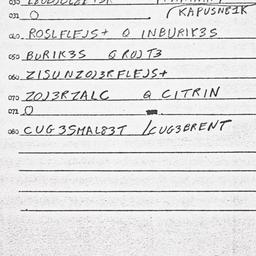 031 O (KAPUSNB1K
040 ROSLFLEJS+ O INBURIK3S
050 BURIK3S GROJT3
060 ZISUNZOJ3RFLEJS+
070 ZOJ3RZALC & CITRIN
071 O
080 CUG3SMALB3T /CUG3BRENT